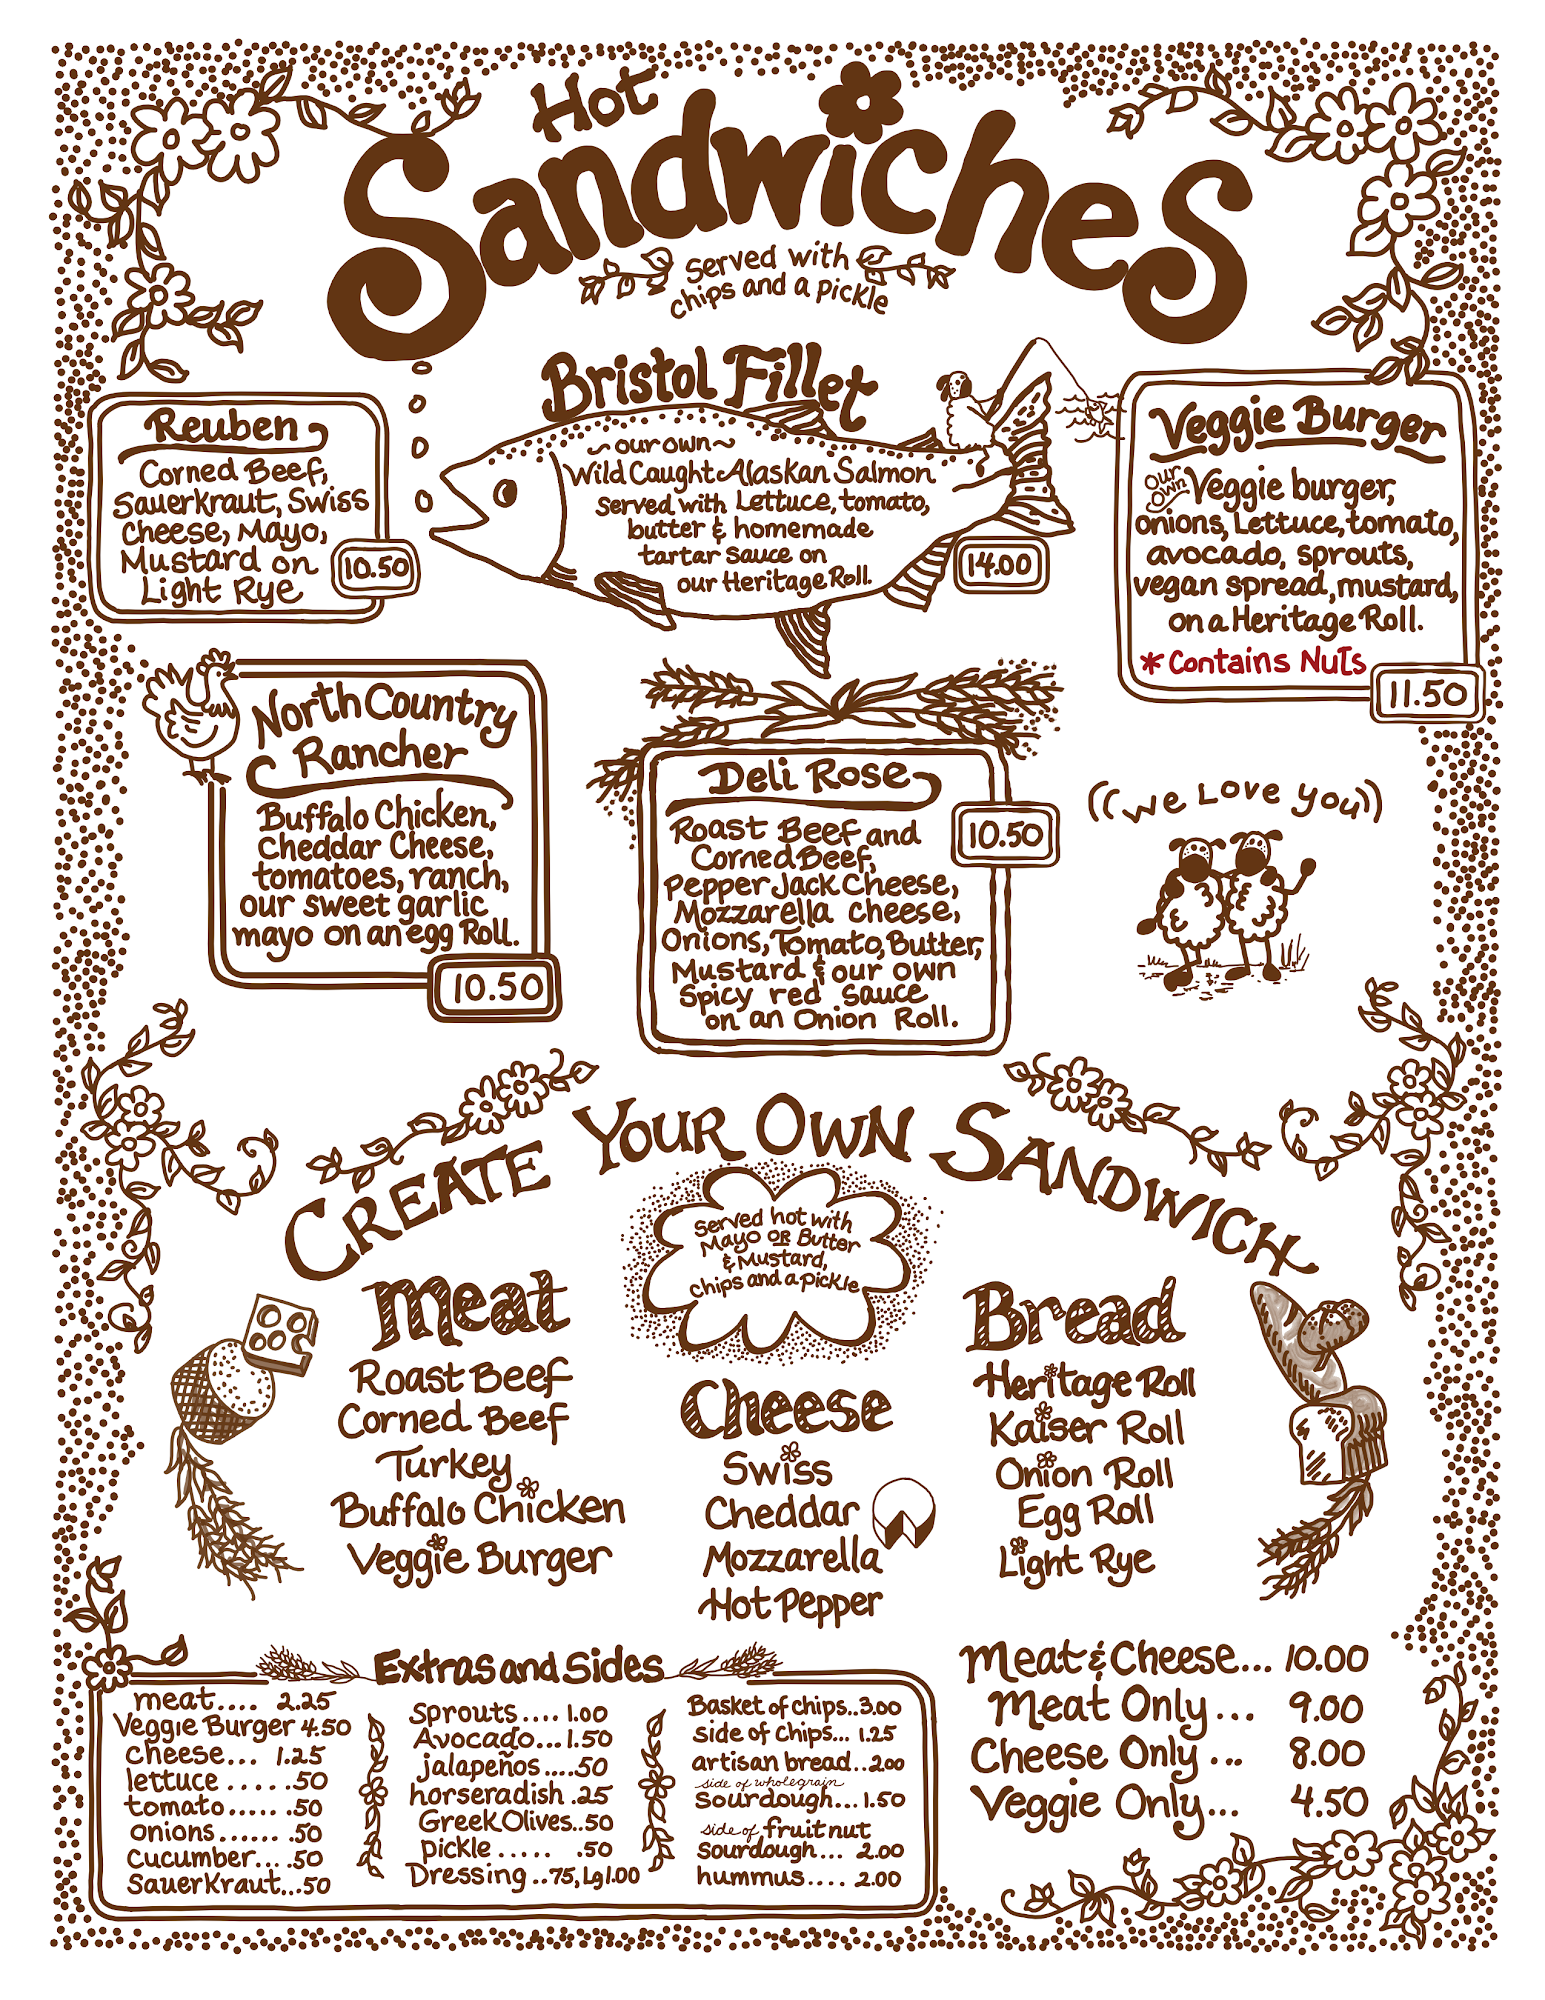 Hot
Sandwiches
served with
chips and a pickle
Reuben
Corned Beef,
Sauerkraut, Swiss
Cheese, Mayo,
Mustard on
Light Rye
10.50
Bristol Fillet
~our own~
Wild Caught Alaskan Salmon
served with Lettuce, tomato,
butter & homemade
tartar sauce on
our Heritage Roll.
14.00
Veggie Burger
our own Veggie burger,
onions, Lettuce, tomato,
avocado, sprouts,
vegan spread, mustard,
on a Heritage Roll.
*Contains Nuts
11.50
North Country
Rancher
Buffalo Chicken,
Cheddar Cheese,
tomatoes, ranch,
our sweet garlic
mayo on an egg Roll.
10.50
Deli Rose
Roast Beef and
Corned Beef,
Pepper Jack Cheese,
Mozzarella cheese,
Onions, Tomato, Butter,
Mustard & our own
Spicy red sauce
on an Onion Roll.
10.50
((we Love you))
CREATE YOUR OWN SANDWICH
served hot with
Mayo OR Butter
& Mustard,
chips and a pickle
Meat
Roast Beef
Corned Beef
Turkey
Buffalo Chicken
Veggie Burger
Cheese
Swiss
Cheddar
Mozzarella
Hot Pepper
Bread
Heritage Roll
Kaiser Roll
Onion Roll
Egg Roll
Light Rye
Extras and Sides
meat.... 2.25
Veggie Burger 4.50
cheese... 1.25
lettuce .....50
tomato..... .50
onions...... .50
Cucumber... .50
Sauerkraut...50
Sprouts.... 1.00
Avocado...1.50
jalapeños.....50
horseradish .25
Greek Olives..50
pickle ..... .50
Dressing ..75, Lg 1.00
Basket of chips..3.00
side of chips... 1.25
artisan bread..2.00
side of wholegrain
Sourdough... 1.50
side of fruit nut
Sourdough... 2.00
hummus.... 2.00
Meat & Cheese... 10.00
Meat Only... 9.00
Cheese Only ... 8.00
Veggie Only... 4.50